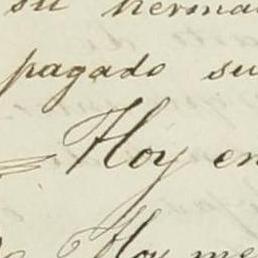 su herma
pagado su
= Hoy en
Hoy me